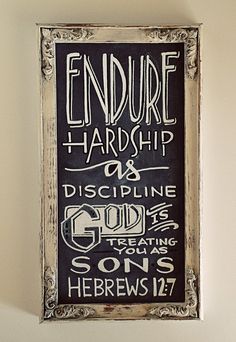 ENDURE
HARDSHIP
as
DISCIPLINE
GOD IS
TREATING
YOU AS
SONS
HEBREWS 12:7